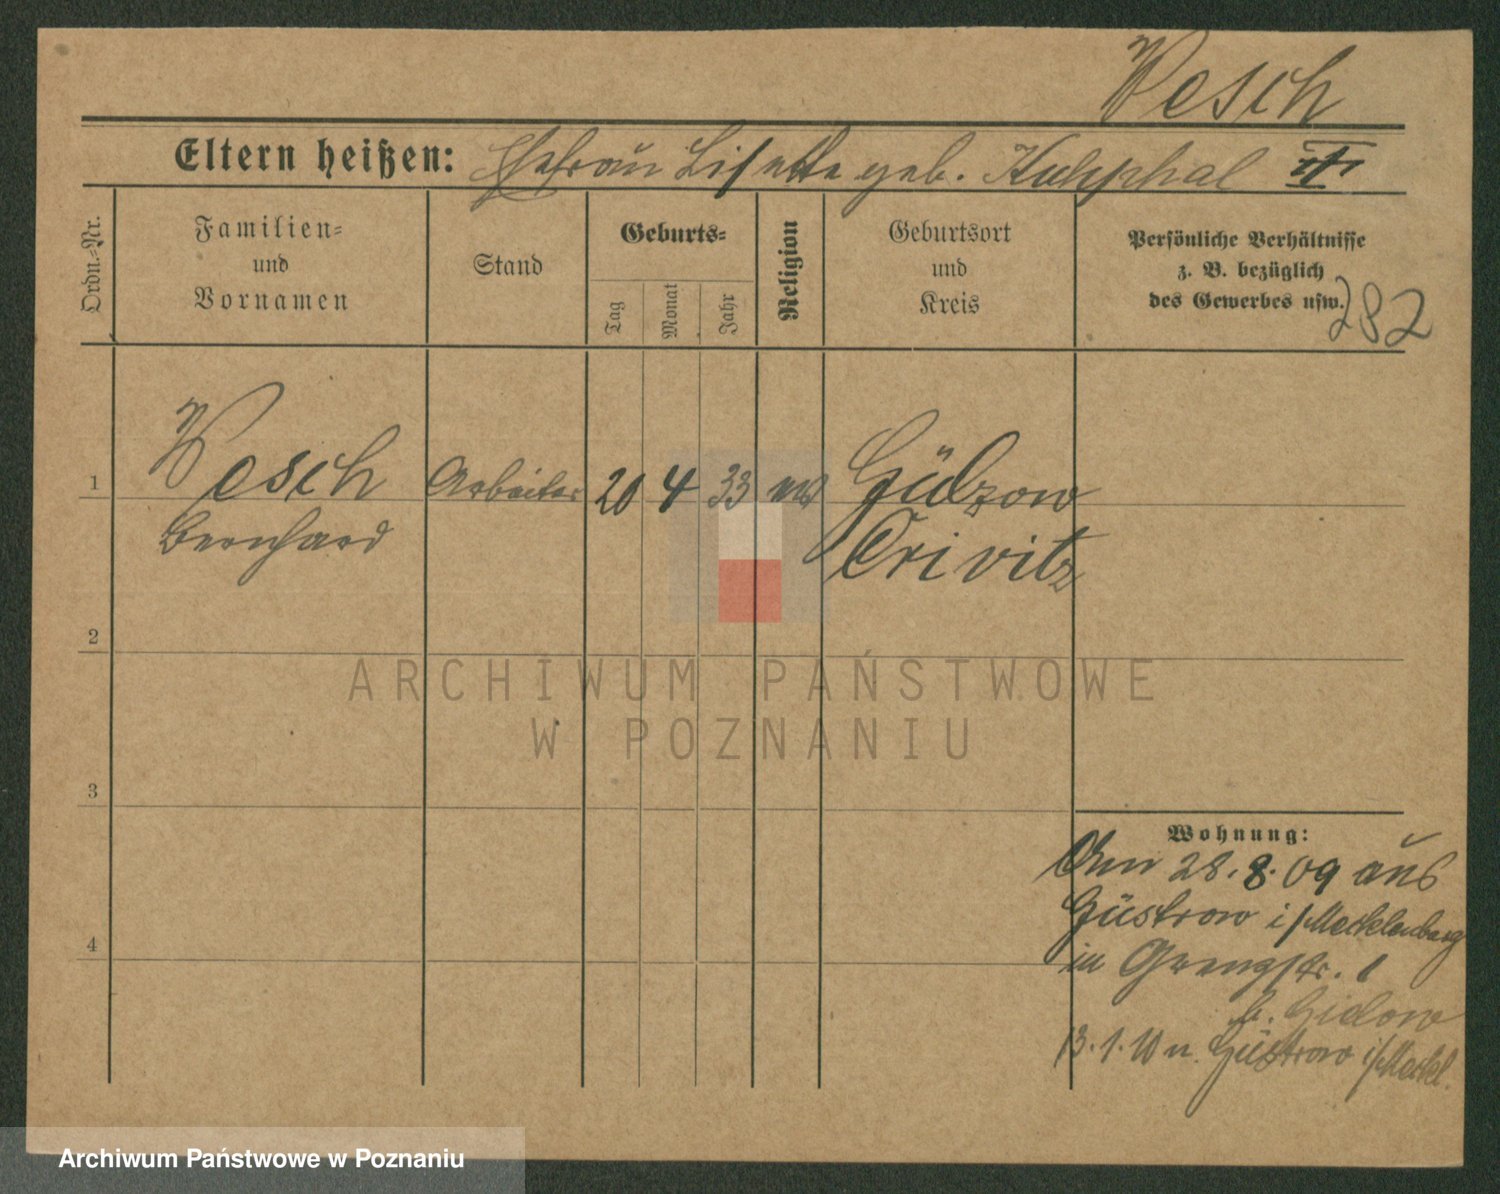 Wesch
Eltern heißen: Ehefrau Lisette geb. Kuhphal III
Ordn.-Nr.
Familien-
und
Vornamen
Stand
Geburts-
Tag
Monat
Jahr
Religion
Geburtsort
und
Kreis
Persönliche Verhältnisse
z. B. bezüglich
des Gewerbes usw.
282
1 Wesch Arbeiter 20 4 33 Gülzow
Bernhard Crivitz
2
3
4
Wohnung:
Am 28.8.09 aus
Güstrow i/Mecklenburg
in str. 1
b. Gidow
13.1.10 n. Güstrow i/Meckl.
ARCHIWUM PAŃSTWOWE
W POZNANIU
Archiwum Państwowe w Poznaniu